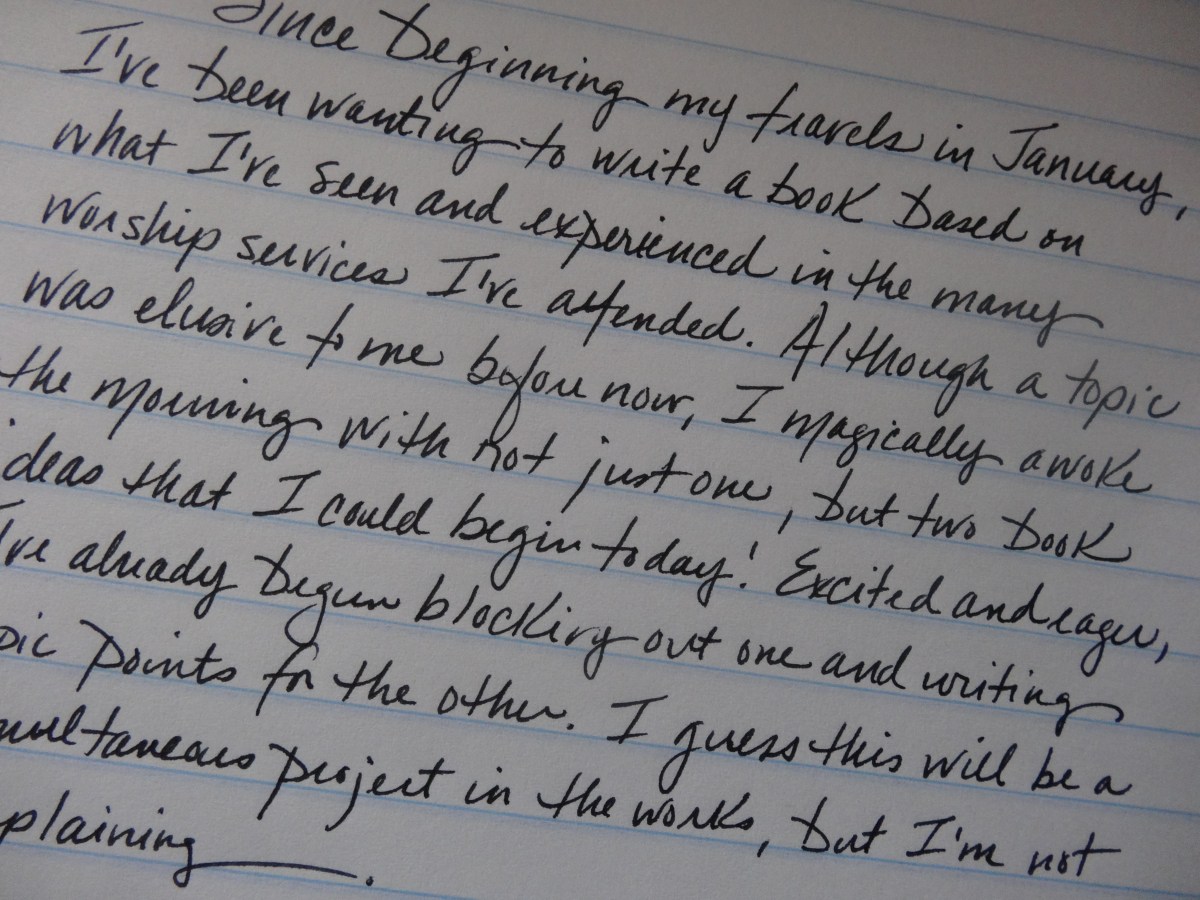 Since beginning my travels in January,
I've been wanting to write a book based on
what I've seen and experienced in the many
worship services I've attended. Although a topic
was elusive to me before now, I magically awoke
the morning with not just one, but two book
ideas that I could begin today! Excited and eager,
I've already begun blocking out one and writing
pic points for the other. I guess this will be a
multaneous project in the works, but I'm not
plaining.